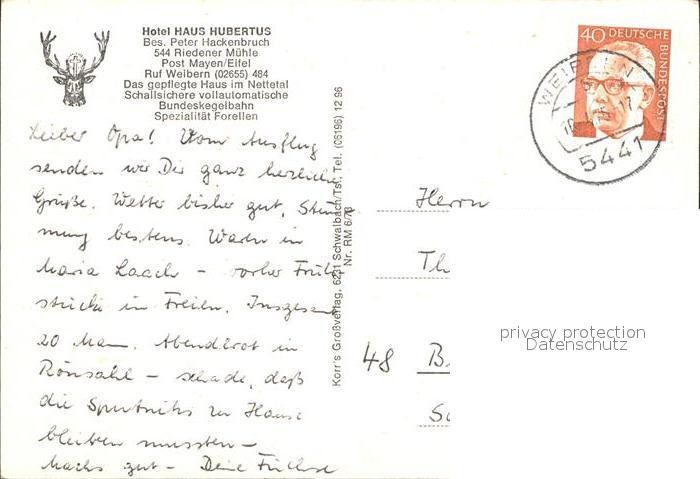 Hotel HAUS HUBERTUS
Bes. Peter Hackenbruch
544 Riedener Mühle
Post Mayen/Eifel
Ruf Weibern (02655) 484
Das gepflegte Haus im Nettetal
Schallsichere vollautomatische
Bundeskegelbahn
Spezialität Forellen
Lieber Opa! Vom Ausflug
senden wir Dir ganz herzliche
Grüße. Wetter bisher gut, Stim
mung bestens. Waren in
Maria Laach – vorher Früh
stück im Freien. Insgesamt
20 Mann. Abendbrot in
Rönsahl – schade, daß
die Sputniks zu Hause
bleiben mussten –
Machs gut – Deine Füchse
Korr's Großverlag, 6231 Schwalbach/Tst., Tel. (06196) 12 96
Nr. RM 6/73
40 DEUTSCHE
BUNDESPOST
WEIBERN
5441
Herrn
Th
48 B
privacy protection
Datenschutz